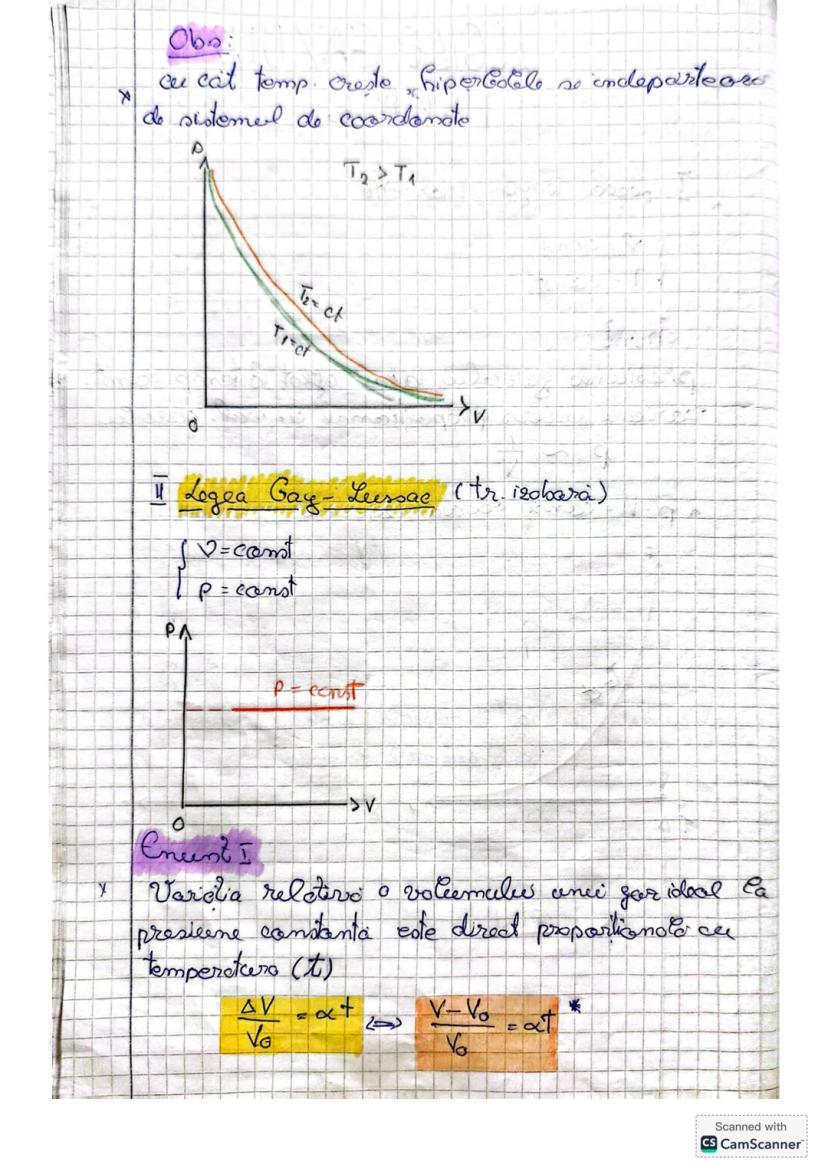 Obs:
* cu cât temp. crește, hiperbolele se îndepărtează
de sistemul de coordonate
P
T₂ > T₁
T₂ = ct
T₁ = ct
V
O
II Legea Gay-Lussac (tr. izobară)
{ ν = const
p = const
P
P = const
V
O
Enunț I
* Variația relativă a volumului unui gaz ideal la
presiune constantă este direct proporțională cu
temperatura (t)
ΔV/V₀ = αt <=> V-V₀/V₀ = αt *
Scanned with
CS CamScanner